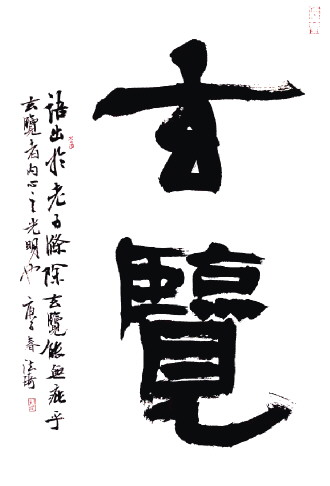 玄覽
語出於老子滌除玄覽能無疵乎
玄覽者内心之光明也 庚子春